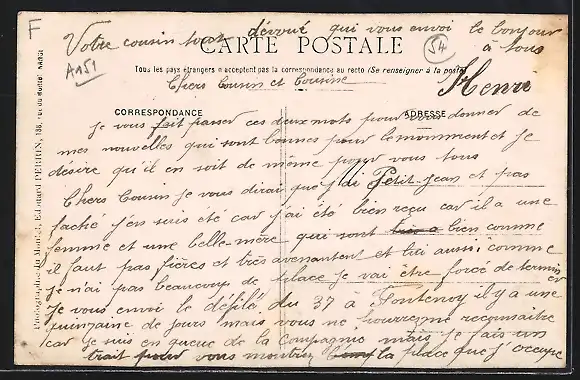 F
Votre cousin tout dévoué qui vous envoi le bonjour
à tous
CARTE POSTALE
54
A151
Tous les pays étrangers n'acceptent pas la correspondance au recto (Se renseigner à la poste)
Chers Cousin et Cousine
Henri
CORRESPONDANCE
ADRESSE
Je vous fait passer ces deux mots pour donner de
mes nouvelles qui sont bonnes pour le momment et Je
désire qu'il en soit de même pour vous tous
Chers Cousin Je vous dirai que j'ai Petit-Jean et pas
faché j'en suis eté car j'ai été bien reçu car il a une
femme et une belle-mère qui sont bien comme
il faut pas fières et très avenantent et lui aussi, comme
je n'ai pas beaucoup de place Je vai être force de terminer
Je vous envoi le défilé du 37 à Fontenoy il y a une
quinzaine de jours mais vous ne pourrez me reconnaitre
car Je suis en queue de la Compagnie mais je fais un
trait pour vous montrer la place que j'occupe
Photographie du Montet, Edouard PERRIN, 138, rue du Montet, NANCY